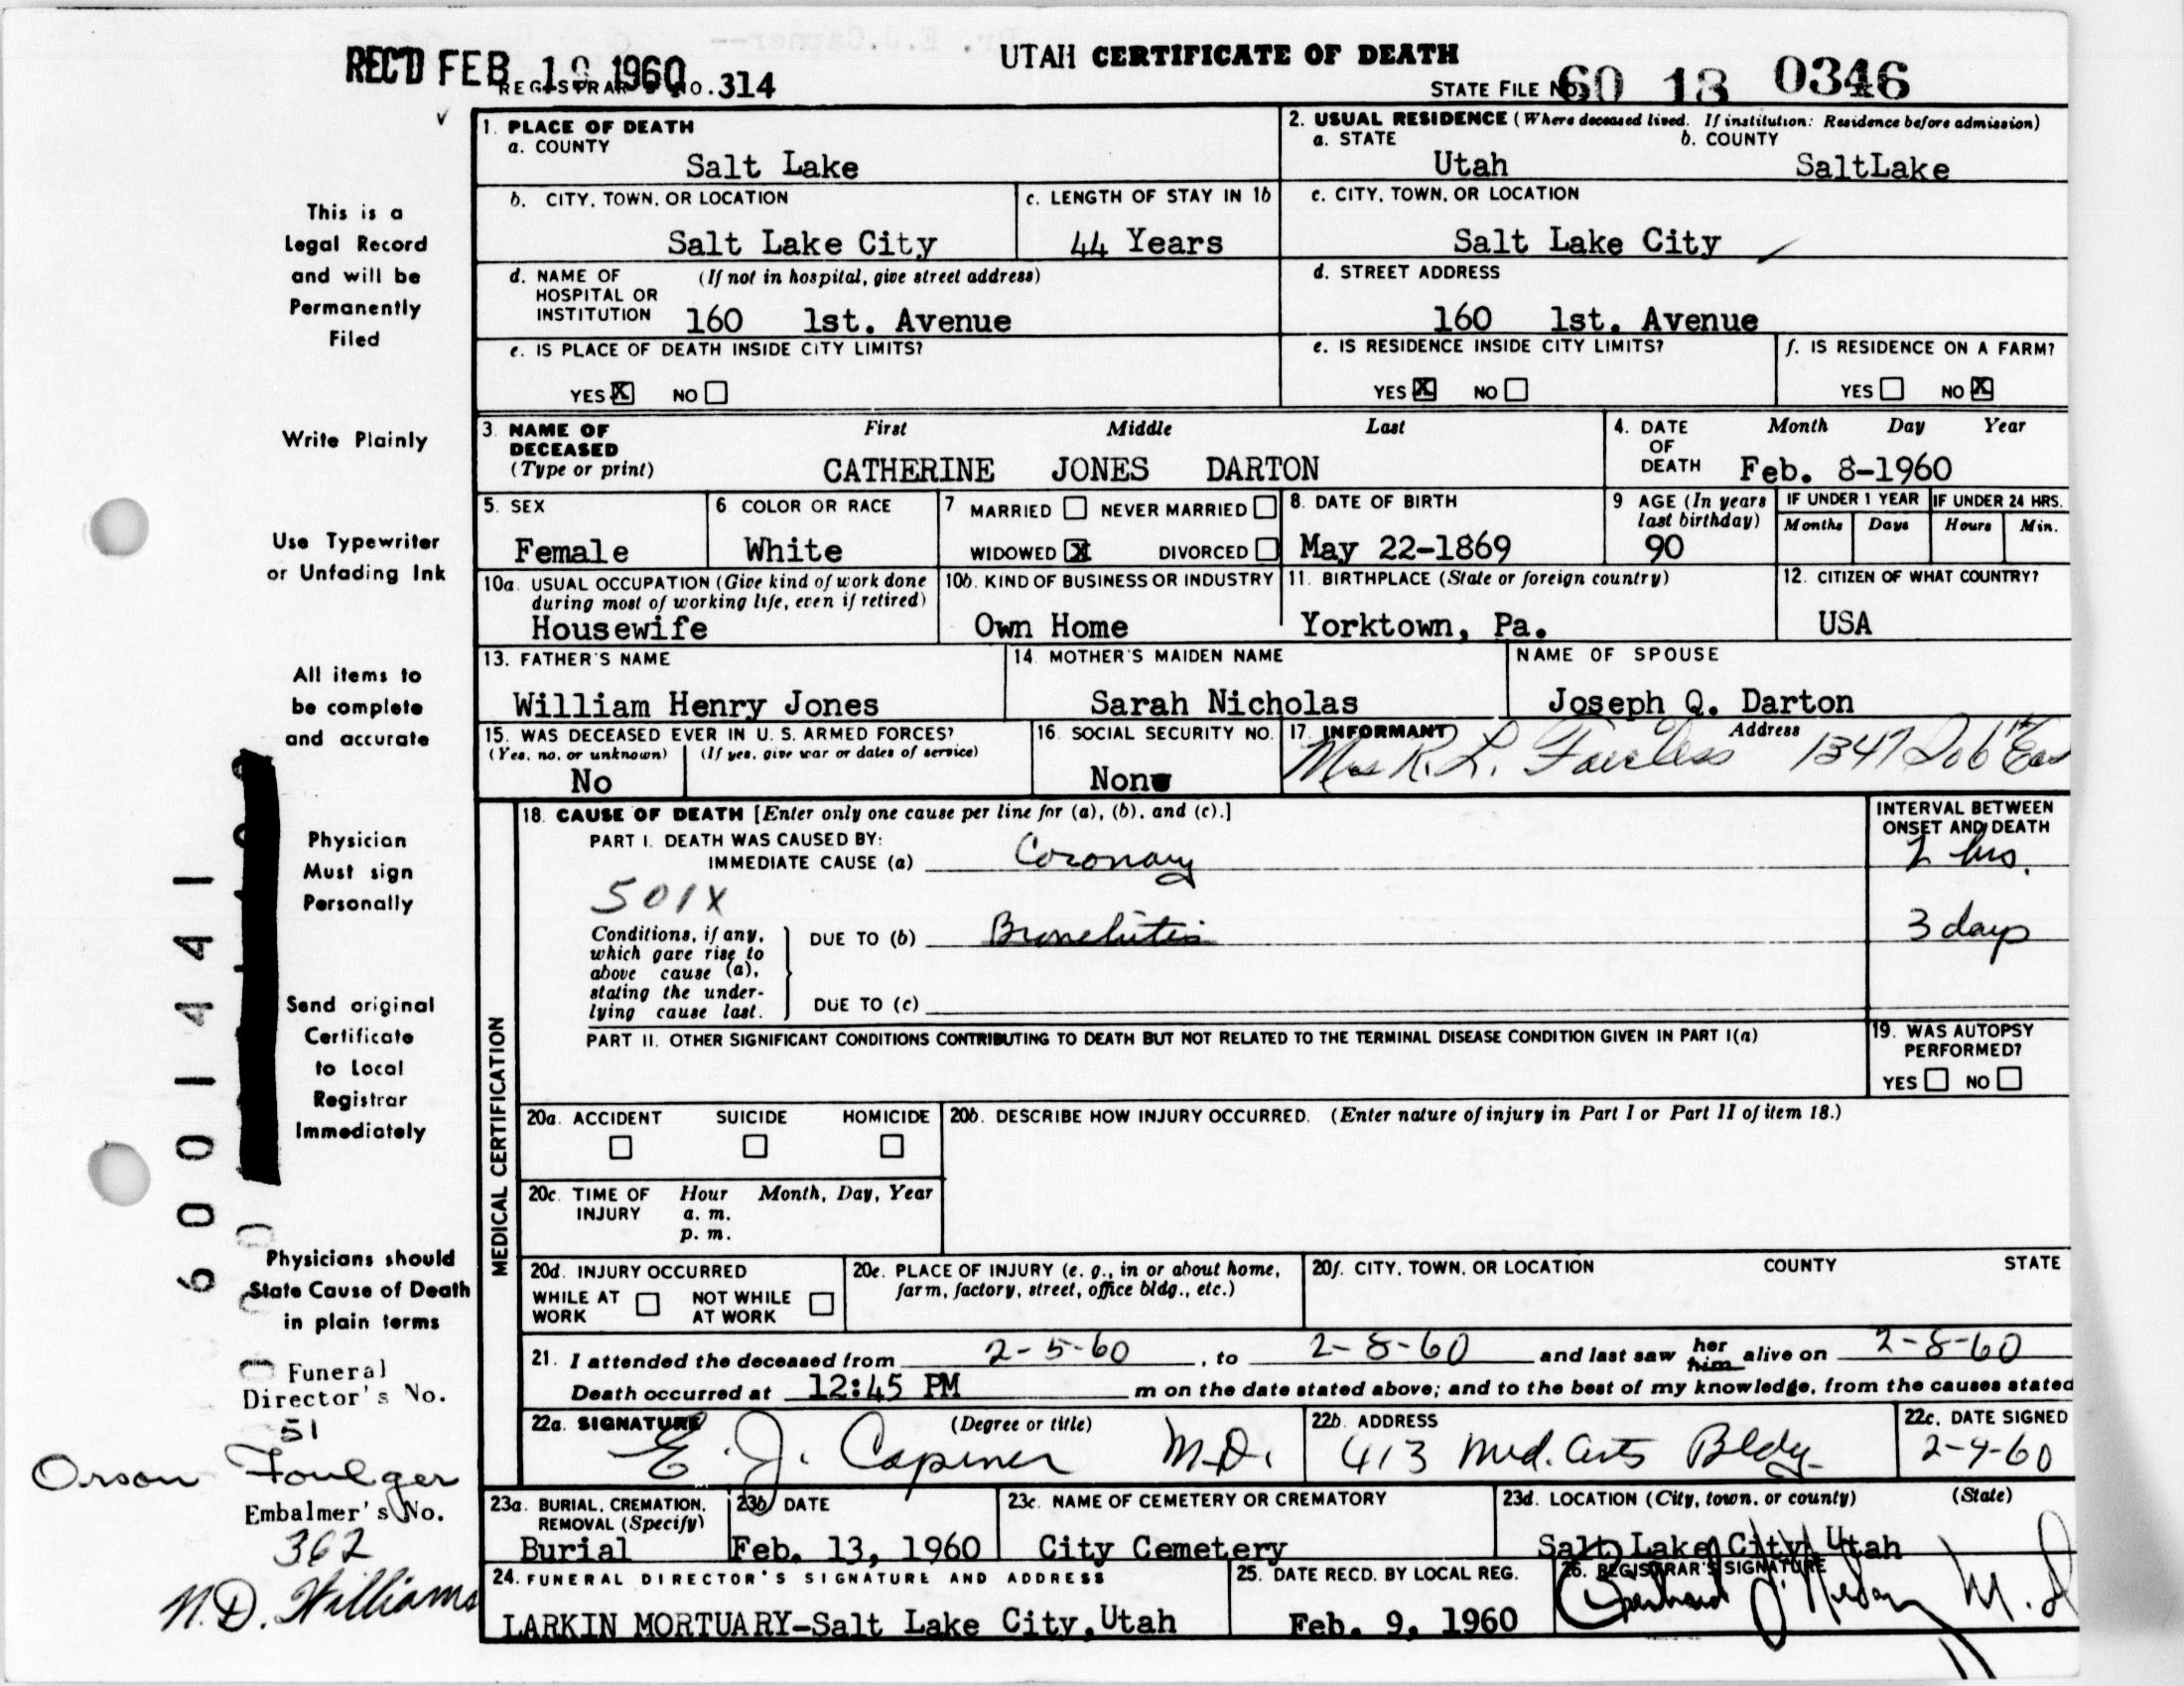 UTAH CERTIFICATE OF DEATH
REC'D FEB 1960
REGISTRAR NO. 314
STATE FILE No. 60 18 0346
1. PLACE OF DEATH
a. COUNTY
Salt Lake
2. USUAL RESIDENCE (Where deceased lived. If institution: Residence before admission)
a. STATE b. COUNTY
Utah SaltLake
b. CITY, TOWN, OR LOCATION
Salt Lake City
c. LENGTH OF STAY IN 1b
44 Years
c. CITY, TOWN, OR LOCATION
Salt Lake City
d. NAME OF (If not in hospital, give street address)
HOSPITAL OR
INSTITUTION 160 1st. Avenue
d. STREET ADDRESS
160 1st. Avenue
e. IS PLACE OF DEATH INSIDE CITY LIMITS?
YES X NO
e. IS RESIDENCE INSIDE CITY LIMITS?
YES X NO
f. IS RESIDENCE ON A FARM?
YES NO X
3. NAME OF DECEASED (Type or print)
First Middle Last
CATHERINE JONES DARTON
4. DATE OF DEATH
Month Day Year
Feb. 8-1960
5. SEX
Female
6 COLOR OR RACE
White
7 MARRIED NEVER MARRIED
WIDOWED X DIVORCED
8. DATE OF BIRTH
May 22-1869
9 AGE (In years last birthday)
90
IF UNDER 1 YEAR
Months Days
IF UNDER 24 HRS.
Hours Min.
10a. USUAL OCCUPATION (Give kind of work done
during most of working life, even if retired)
Housewife
10b. KIND OF BUSINESS OR INDUSTRY
Own Home
11. BIRTHPLACE (State or foreign country)
Yorktown, Pa.
12. CITIZEN OF WHAT COUNTRY?
USA
13. FATHER'S NAME
William Henry Jones
14. MOTHER'S MAIDEN NAME
Sarah Nicholas
NAME OF SPOUSE
Joseph Q. Darton
15. WAS DECEASED EVER IN U. S. ARMED FORCES?
(Yes, no, or unknown) (If yes, give war or dates of service)
No
16. SOCIAL SECURITY NO.
None
17. INFORMANT Address
Mrs R. L. Fairless 1347
18. CAUSE OF DEATH [Enter only one cause per line for (a), (b), and (c).]
INTERVAL BETWEEN
ONSET AND DEATH
PART I. DEATH WAS CAUSED BY:
IMMEDIATE CAUSE (a) Coronary 2 hrs.
501X
Conditions, if any,
which gave rise to
above cause (a),
stating the under-
lying cause last.
DUE TO (b) Bronchitis 3 days
DUE TO (c)
PART II. OTHER SIGNIFICANT CONDITIONS CONTRIBUTING TO DEATH BUT NOT RELATED TO THE TERMINAL DISEASE CONDITION GIVEN IN PART I(a)
19. WAS AUTOPSY
PERFORMED?
YES NO
MEDICAL CERTIFICATION
20a. ACCIDENT SUICIDE HOMICIDE
20b. DESCRIBE HOW INJURY OCCURRED. (Enter nature of injury in Part I or Part II of item 18.)
20c. TIME OF INJURY
Hour Month, Day, Year
a. m.
p. m.
20d. INJURY OCCURRED
WHILE AT WORK NOT WHILE AT WORK
20e. PLACE OF INJURY (e. g., in or about home,
farm, factory, street, office bldg., etc.)
20f. CITY, TOWN, OR LOCATION COUNTY STATE
21. I attended the deceased from 2-5-60, to 2-8-60 and last saw her him alive on 2-8-60
Death occurred at 12:45 PM m on the date stated above; and to the best of my knowledge, from the causes stated
22a. SIGNATURE (Degree or title)
E. J. Capener M.D.
22b. ADDRESS
413 Med. Arts Bldg.
22c. DATE SIGNED
2-9-60
23a. BURIAL, CREMATION,
REMOVAL (Specify)
Burial
23b DATE
Feb. 13, 1960
23c. NAME OF CEMETERY OR CREMATORY
City Cemetery
23d. LOCATION (City, town, or county) (State)
Salt Lake City, Utah
24. FUNERAL DIRECTOR'S SIGNATURE AND ADDRESS
LARKIN MORTUARY-Salt Lake City,Utah
25. DATE RECD. BY LOCAL REG.
Feb. 9, 1960
26. REGISTRAR'S SIGNATURE
M.D.
This is a
Legal Record
and will be
Permanently
Filed
Write Plainly
Use Typewriter
or Unfading Ink
All items to
be complete
and accurate
Physician
Must sign
Personally
Send original
Certificate
to Local
Registrar
Immediately
Physicians should
State Cause of Death
in plain terms
Funeral
Director's No.
51
Orson Foulger
Embalmer's No.
362
N.D. Williams
6001441